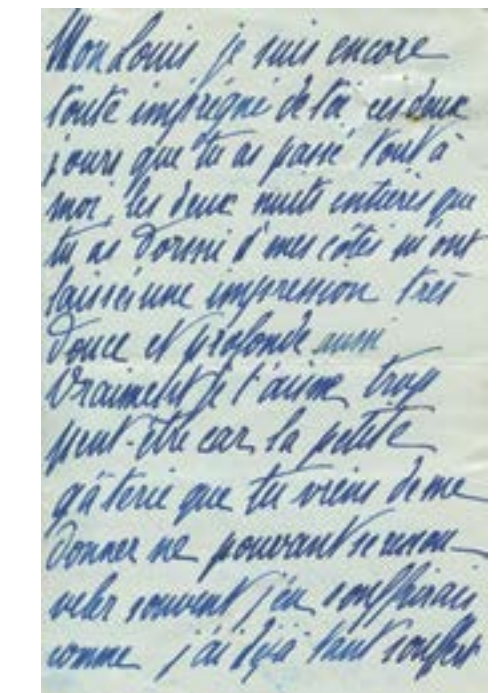 Mon Louis je suis encore
toute imprégné de toi ces deux
jours que tu as passé tout à
moi, les deux nuits entieres que
tu as dormi à mes côtés m'ont
laissée une impression très
douce et profonde aussi
Vraiment je t'aime trop
peut-être car la petite
gâterie que tu viens de me
donner ne pouvant se renou-
veler souvent j'en souffrirais
comme j'ai déjà tant souffert